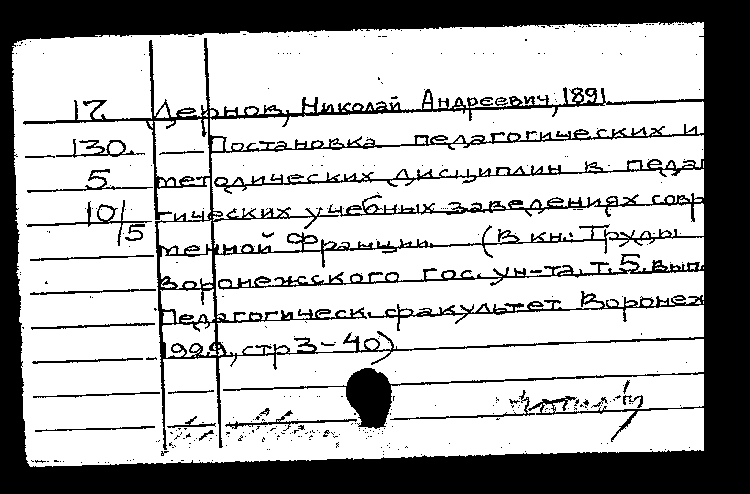 17. Дернов, Николай Андреевич, 1891.
130. Постановка педагогических и
5. методических дисциплин в педаг
10/5 гических учебных заведениях совр
менной Франции. (В кн.: Труды
Воронежского гос. ун-та, т. 5. вып.
Педагогическ. факультет. Воронеж
1929, стр 3-40)